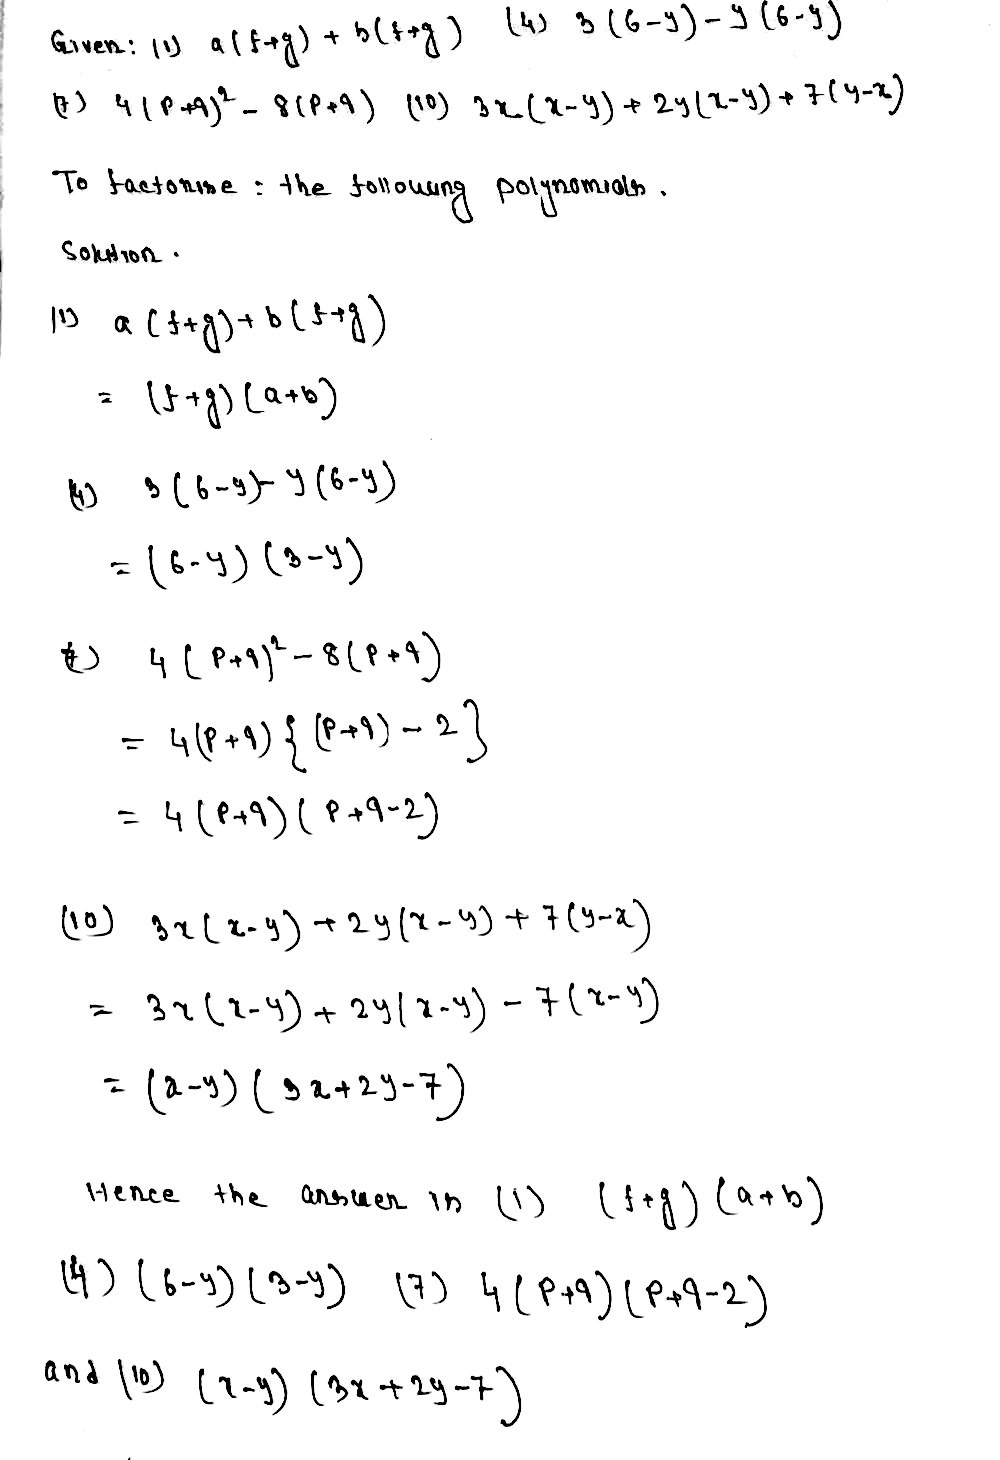 Given: (1) a(f+g) + b(f+g) (4) 3(6-y)-y(6-y)
(7) 4(p+q)² - 8(p+q) (10) 3x(x-y) + 2y(x-y) + 7(y-x)
To factorise : the following polynomials.
Solution.
(1) a(f+g)+b(f+g)
= (f+g)(a+b)
(4) 3(6-y)-y(6-y)
= (6-y)(3-y)
(7) 4(p+q)² - 8(p+q)
= 4(p+q){(p+q) - 2}
= 4(p+q)(p+q-2)
(10) 3x(x-y) + 2y(x-y) + 7(y-x)
= 3x(x-y) + 2y(x-y) - 7(x-y)
= (x-y)(3x+2y-7)
Hence the answer is (1) (f+g)(a+b)
(4) (6-y)(3-y) (7) 4(p+q)(p+q-2)
and (10) (x-y)(3x+2y-7)